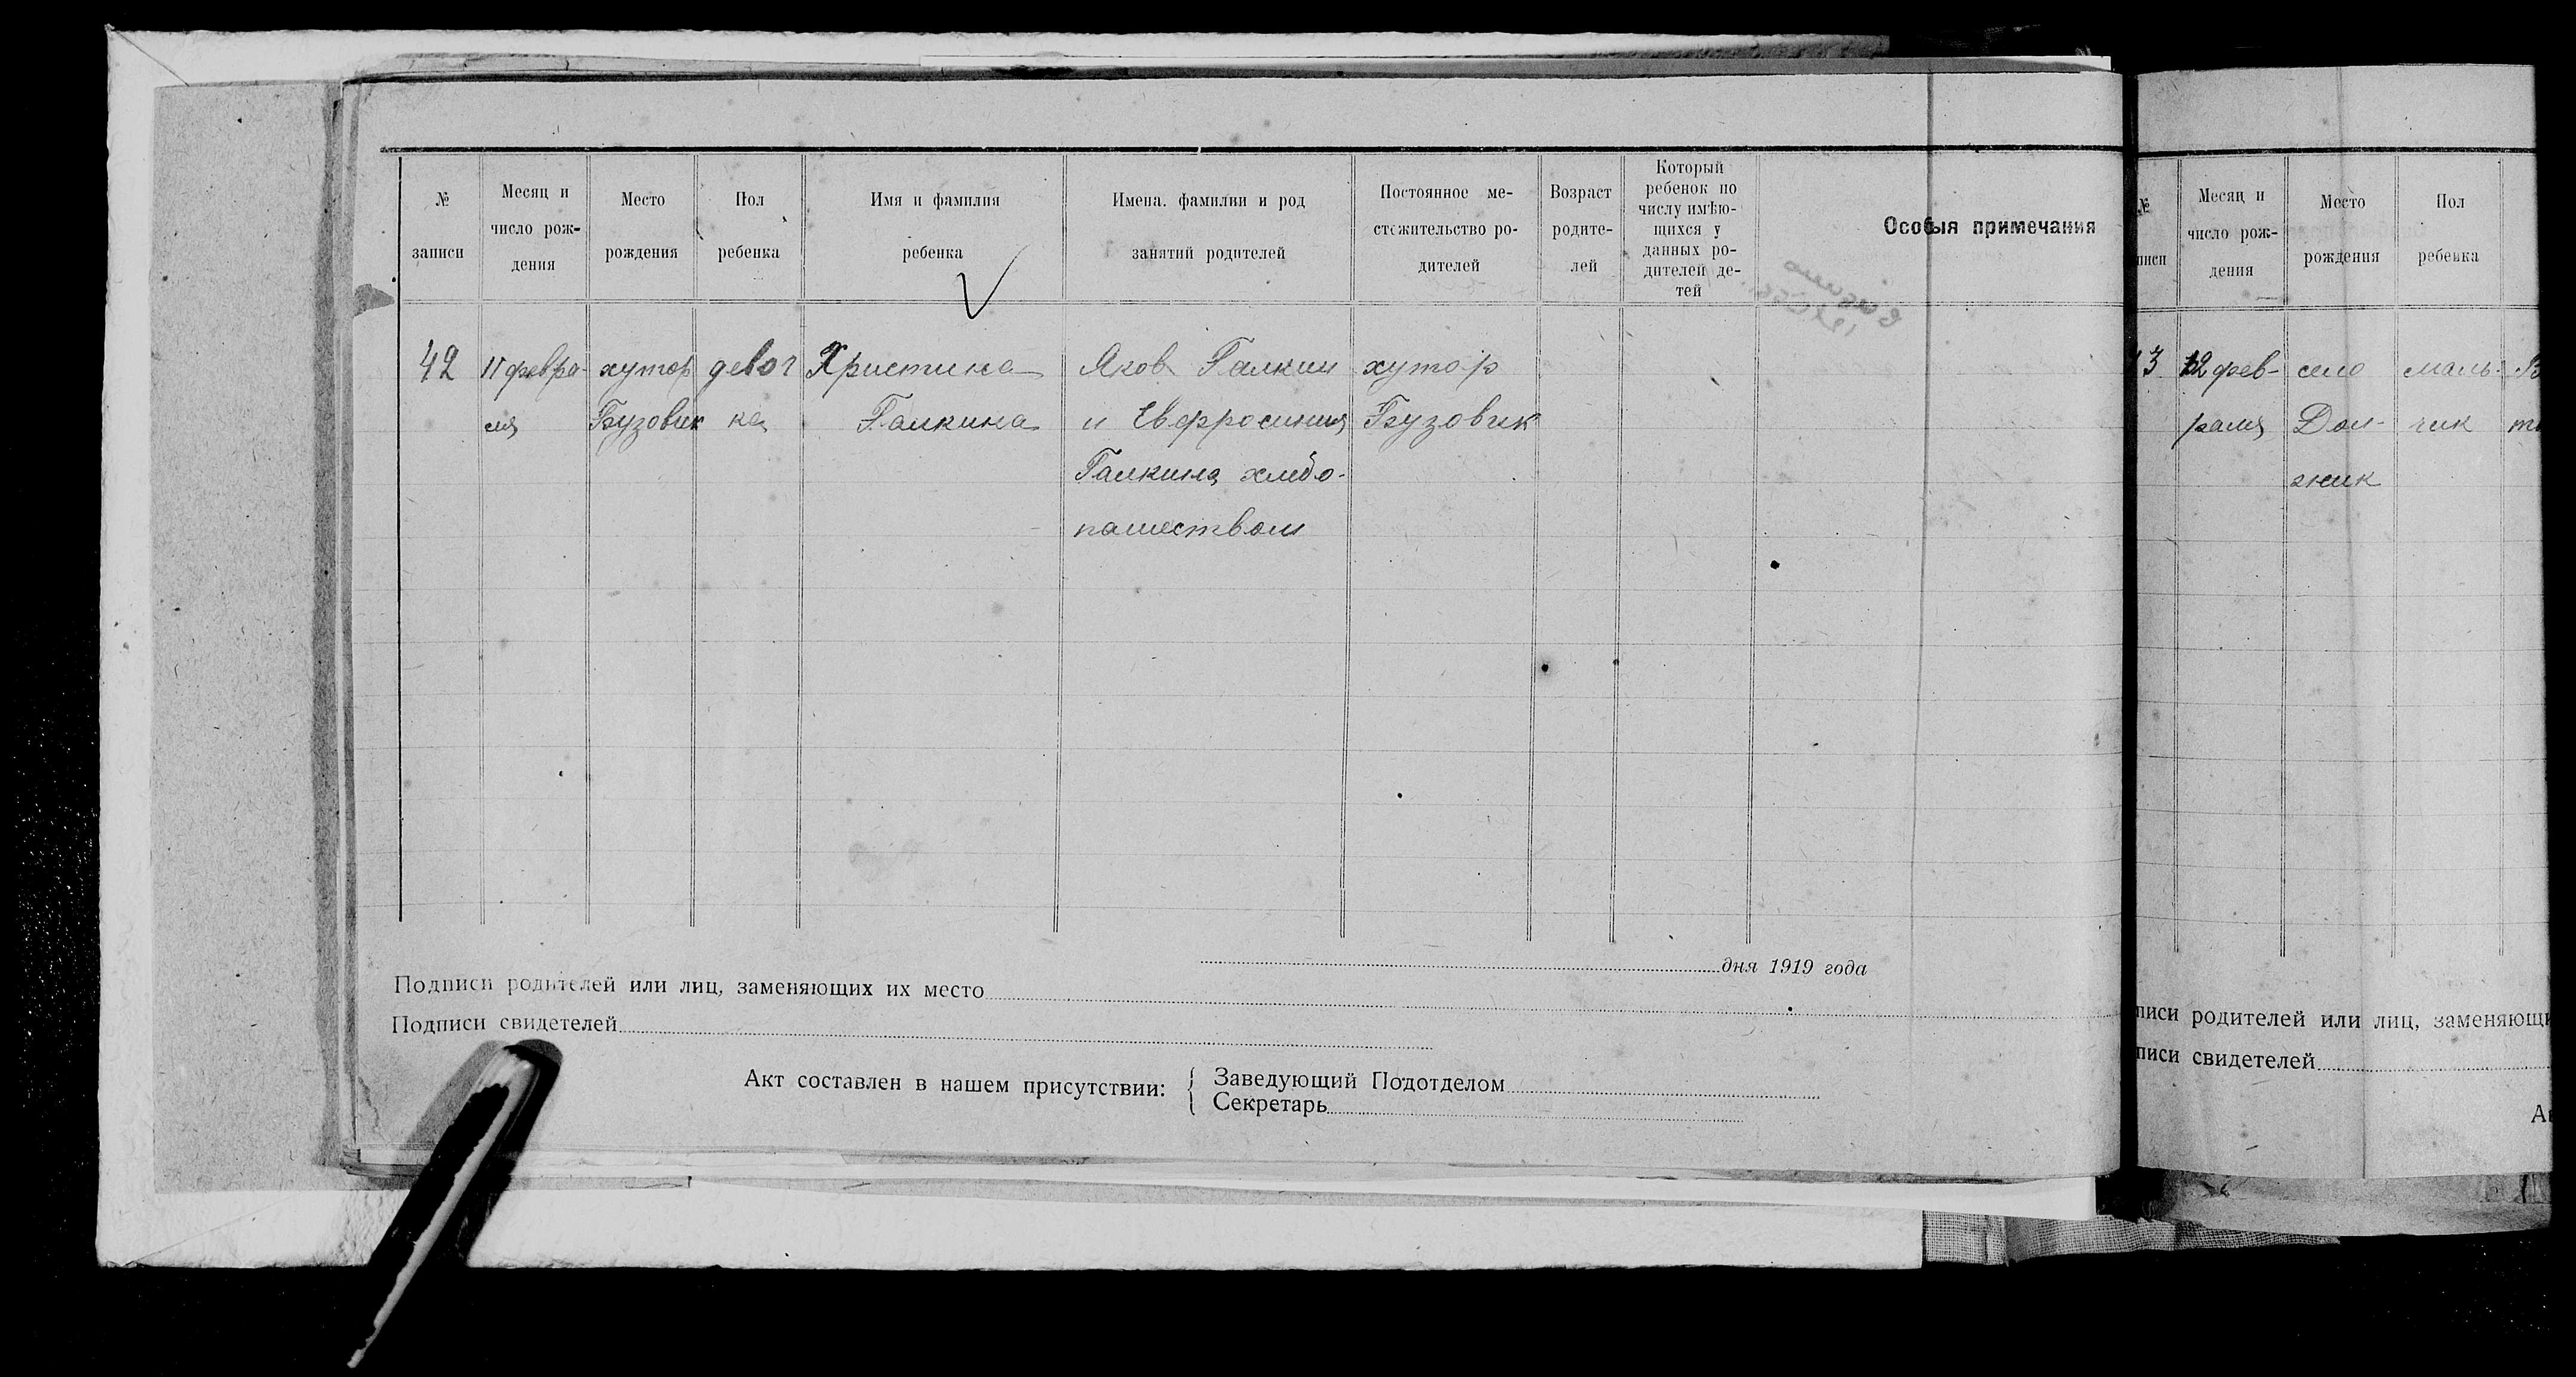 № записи
Месяц и число рож- дения
Место рождения
Пол ребенка
Имя и фамилия ребенка
Имена. фамилии и род занятий родителей
Постоянное ме- стожительство ро- дителей
Возраст родите- лей
Который ребенок по числу имѣю- щихся у данных ро- дителей де- тей
Особыя примечания
42
11 февра-
ля
хутор
Бузовик
девоч
ка
Христина
Галкина
Яков Галкин
и Евфросиния
Галкина хлебо-
пашеством
хутор
Бузовик
дня 1919 года
Подписи родителей или лиц, заменяющих их место
Подписи свидетелей
Акт составлен в нашем присутствии:
Заведующий Подотделом
Секретарь
№
писи
Месяц и число рож- дения
Место рождения
Пол ребенка
3
12 фев-
раля
село
Дол-
жик
маль-
чик
писи родителей или лиц, заменяющи
писи свидетелей